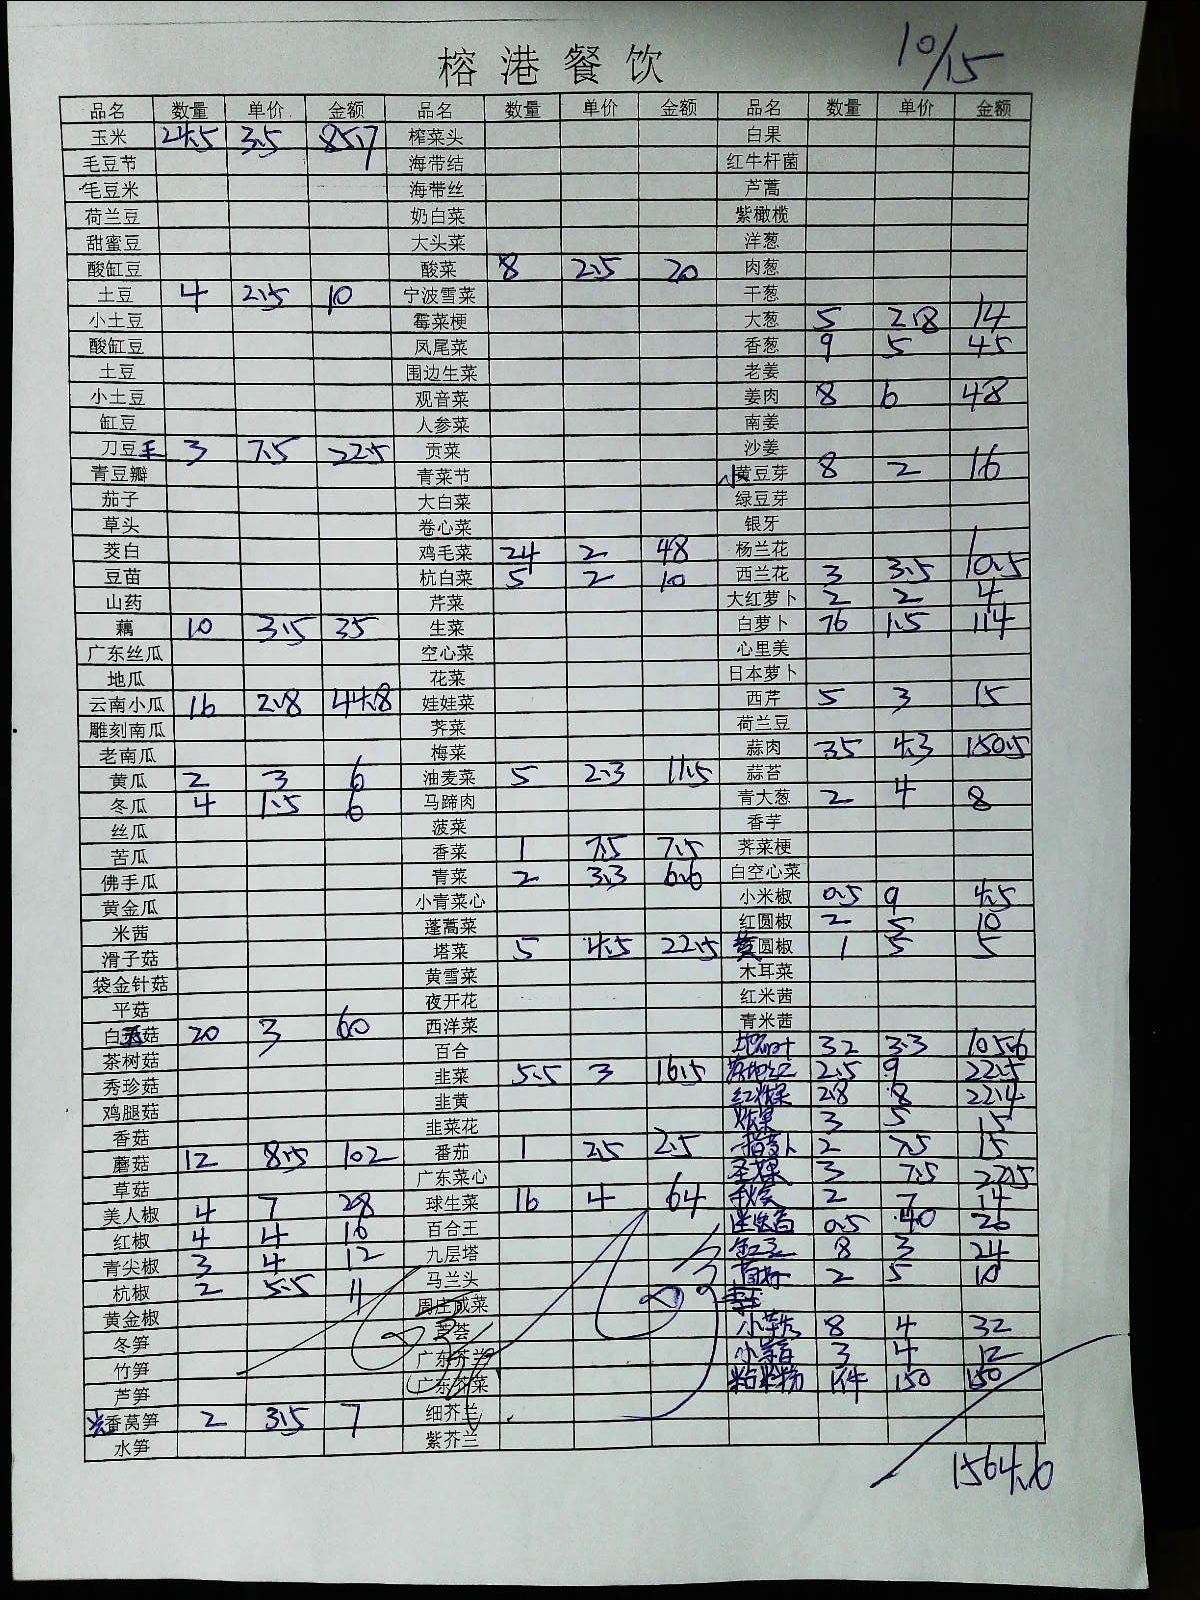 榕港餐饮
10/15
品名 数量 单价 金额 品名 数量 单价 金额 品名 数量 单价 金额
玉米 24.5 3.5 85.7 榨菜头 白果
毛豆节 海带结 红牛杆菌
毛豆米 海带丝 芦蒿
荷兰豆 奶白菜 紫橄榄
甜蜜豆 大头菜 洋葱
酸缸豆 酸菜 8 2.5 20 肉葱
土豆 4 2.5 10 宁波雪菜 干葱
小土豆 霉菜梗 大葱 5 2.8 14
酸缸豆 凤尾菜 香葱 9 5 45
土豆 围边生菜 老姜
小土豆 观音菜 姜肉 8 6 48
缸豆 人参菜 南姜
刀豆 3 7.5 22.5 贡菜 沙姜
青豆瓣 青菜节 小黄豆芽 8 2 16
茄子 大白菜 绿豆芽
草头 卷心菜 银牙
茭白 鸡毛菜 24 2 48 杨兰花
豆苗 杭白菜 5 2 10 西兰花 3 3.5 10.5
山药 芹菜 大红萝卜 2 2 4
藕 10 3.5 35 生菜 白萝卜 76 1.5 114
广东丝瓜 空心菜 心里美
地瓜 花菜 日本萝卜
云南小瓜 16 2.8 44.8 娃娃菜 西芹 5 3 15
雕刻南瓜 荠菜 荷兰豆
老南瓜 梅菜 蒜肉 35 4.3 150.5
黄瓜 2 3 6 油麦菜 5 2.3 11.5 蒜苔
冬瓜 4 1.5 6 马蹄肉 青大葱 2 4 8
丝瓜 菠菜 香芋
苦瓜 香菜 1 7.5 7.5 荠菜梗
佛手瓜 青菜 2 3.3 6.6 白空心菜
黄金瓜 小青菜心 小米椒 0.5 9 4.5
米茜 蓬蒿菜 红圆椒 2 5 10
滑子菇 塔菜 5 4.5 22.5 黄圆椒 1 5 5
袋金针菇 黄雪菜 木耳菜
平菇 夜开花 红米茜
白玉菇 20 3 60 西洋菜 青米茜
茶树菇 百合 32 3.3 105.6
秀珍菇 韭菜 5.5 3 16.5 2.5 9 22.5
鸡腿菇 韭黄 2.8 8 22.4
香菇 韭菜花 3 5 15
蘑菇 12 8.5 102 番茄 1 2.5 2.5 手指萝卜 2 7.5 15
草菇 广东菜心 圣女果 3 7.5 22.5
美人椒 4 7 28 球生菜 16 4 64 2 7 14
红椒 4 4 16 百合王 迷迭香 0.5 40 20
青尖椒 3 4 12 九层塔 缸豆 8 3 24
杭椒 2 5.5 11 马兰头 2 5 10
黄金椒 周庄咸菜
冬笋 芦荟 小芋艿 8 4 32
竹笋 广东芥兰 3 4 12
芦笋 广东芥菜 粘米粉 1件 150 150
番莴笋 2 3.5 7 细芥兰
水笋 紫芥兰
1564.6